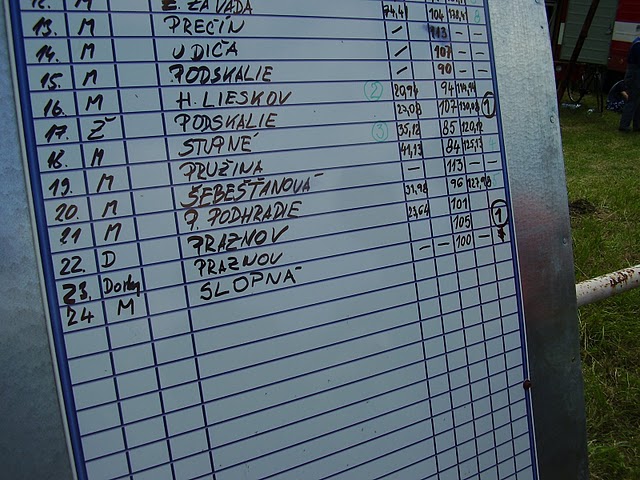 12. M Z. ZÁVADA 74,41 104 138,41 8
13. M PREČÍN / 113 –
14. M UDIČA / 107 –
15. M PODSKALIE / 90 –
16. M H. LIESKOV 2 20,94 94 114,94
17. Ž PODSKALIE 23,08 107 130,08 1
18. M STUPNÉ 3 35,12 85 120,12
19. M PRUŽINA 41,13 84 125,13
20. M ŠEBEŠŤANOVÁ – 113 –
21 M P. PODHRADIE 31,98 96 127,98
22. D PRAZNOV 27,64 101
23. PRAZNOV 105 1
24 M SLOPNÁ – – 100 –